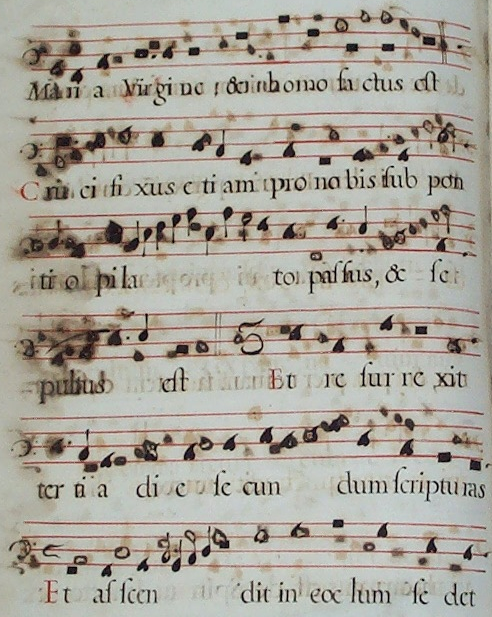 Mari a Virgi ne : & in homo fa ctus est
Cru ci fi xus e ti am pro no bis sub pon
ti o pi la to, passus, & se
pultus est Et re sur re xit
ter ti a di e se cun dum scriptu ras
Et as scen dit in coe lum se det